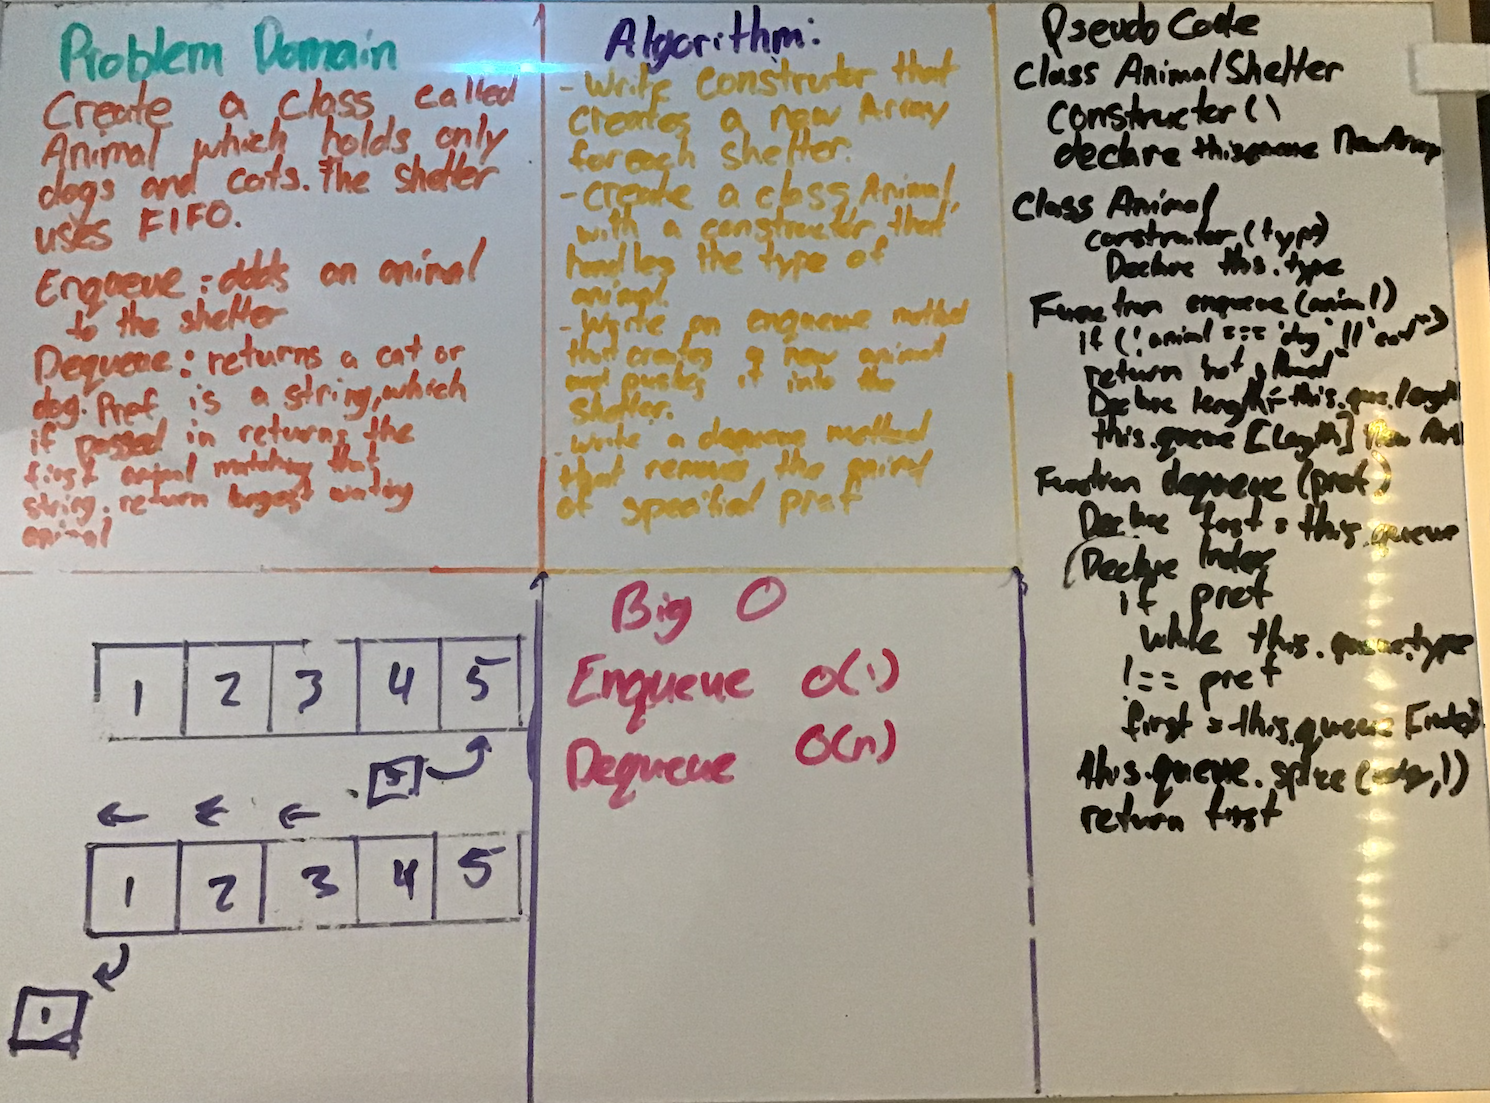 Problem Domain
Create a class called
Animal which holds only
dogs and cats. The shelter
uses FIFO.
Enqueue: adds an animal
to the shelter
Dequeue: returns a cat or
dog. Pref is a string, which
if passed in returns the
first animal matching that
string. return longest waiting
animal
Algorithm:
- Write constructor that
creates a new Array
foreach shelter.
- Create a class Animal,
with a constructor that
handles the type of
animal.
- Write an enqueue method
that creates a new animal
and pushes it into the
shelter.
- Write a dequeue method
that removes the animal
of specified pref
Pseudo Code
Class AnimalShelter
constructer()
declare this.queue New Array
Class Animal
constructor (type)
Declare this.type
Function enqueue (animal)
if (! animal === 'dog' || 'cat')
return not
Declare length = this.que.length
this.queue [length] New
Function dequeue (pref)
Declare first = this.queue
Declare Index
if pref
while this.queue.type
!== pref
first = this.queue [index]
this.queue. (index, 1)
return first
1 2 3 4 5
5
1 2 3 4 5
1
Big O
Enqueue O(1)
Dequeue O(n)